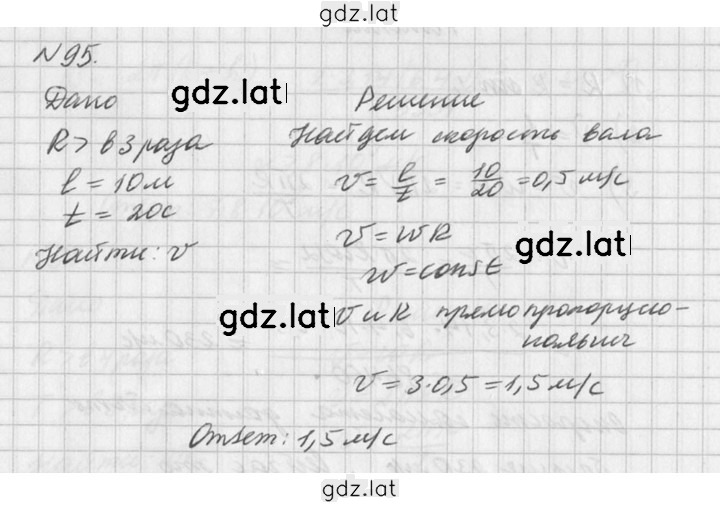 gdz.lat
N95.
Дано
Решение
gdz.lat
R > в 3 раза
Найдем скорость вала
l = 10м
v = l/t = 10/20 = 0,5 м/с
t = 20с
Найти: v
v = wR
w = const
gdz.lat
gdz.lat
v и R прямо пропорцио-
нальны
v = 3·0,5 = 1,5 м/с
Ответ: 1,5 м/с
gdz.lat